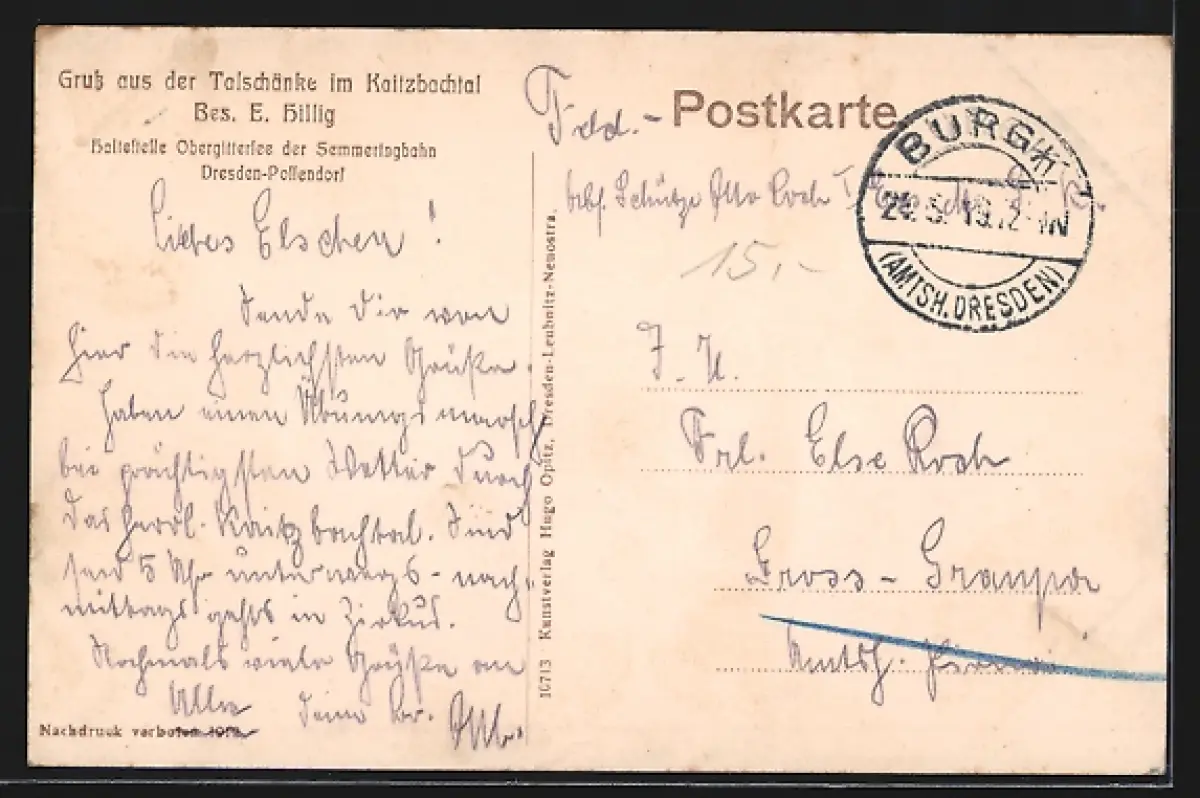 Gruß aus der Talschänke im Kaitzbachtal
Bes. E. Hillig
Haltestelle Obergittersee der Semmeringbahn
Dresden-Possendorf
Liebes Elschen!
Sende Dir von
hier die herzlichsten Grüße.
Haben einen Übungsmarsch
bei prächtigsten Wetter durch
das herrl. Kaitzbachtal. Sind
seid 5 Uhr unterwegs - nach-
mittags gehts in Zirkus.
Nochmals viele Grüße an
Alle Deine Br. Otto.
Nachdruck verboten
10713 Kunstverlag Hugo Opitz, Dresden-Leubnitz-Neuostra.
Feld.- Postkarte
Schütze Otto Koch
15,-
BURGK
24.5.
12-1N
(AMTSH. DRESDEN)
Frl. Else Koch
Gross-Graupa
Amtsh. Pirna